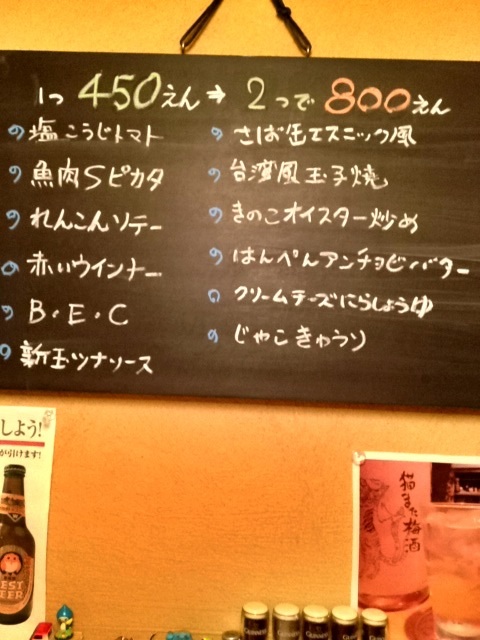 1つ 450えん→ 2つで 800えん
塩こうじトマト
魚肉Sピカタ
れんこんソテー
赤いウインナー
B・E・C
新玉ツナソース
さば缶エスニック風
台湾風玉子焼
きのこオイスター炒め
はんぺんアンチョビバター
クリームチーズにらしょうゆ
じゃこきゅうり
しよう!
が引けます!
EST
BEER
猫また梅酒